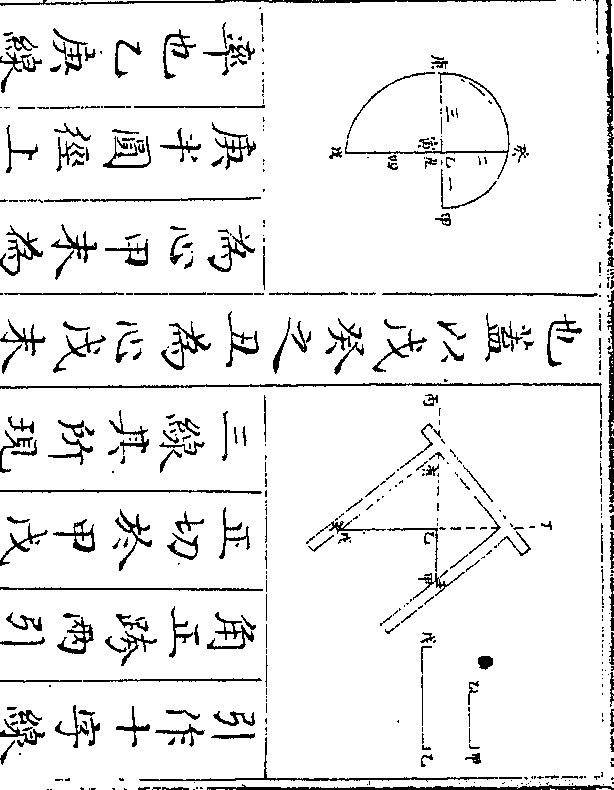 引作十字線
角正跨兩引
正切於甲戊
三線其所現
也蓋以戊癸之丑為心戊未
為心甲未為
庚半圓徑上
率也乙庚線
乙 甲
戊 乙
丁
丙
乙
甲
戊
癸
庚
甲
一
二
三
四
乙
丑
寅
戊